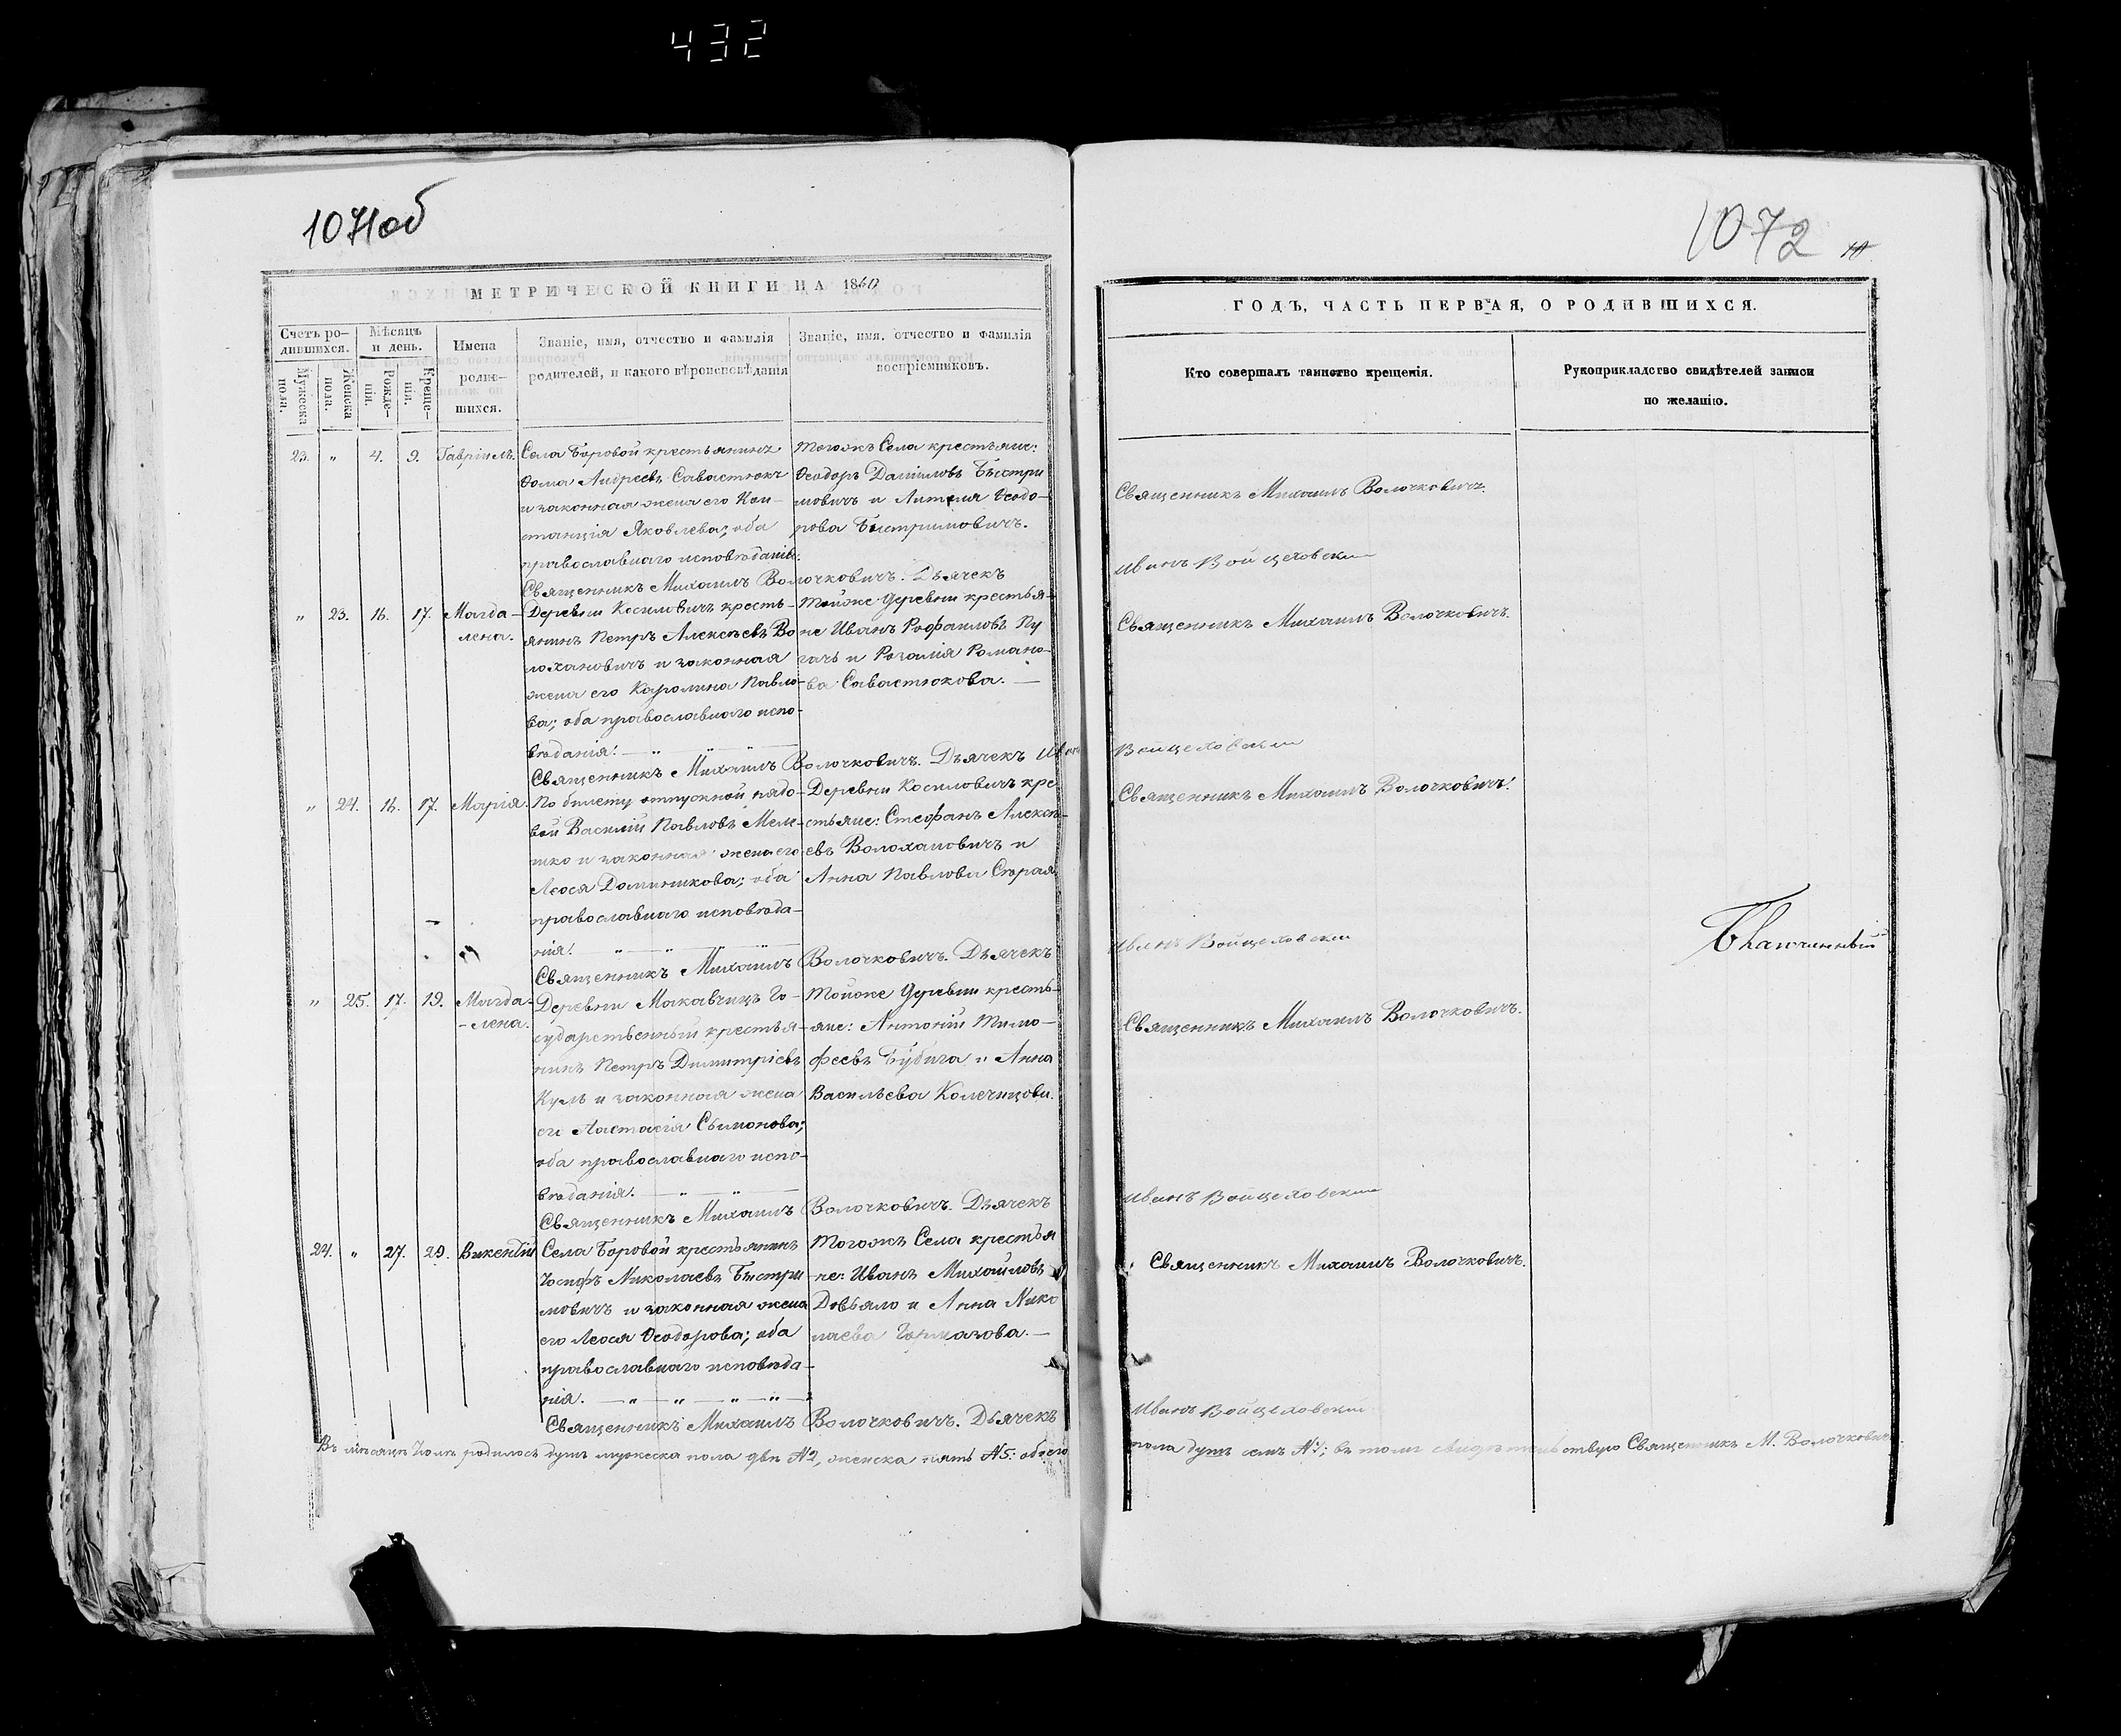 432
1071об
МЕТРИЧЕСКОЙ КНИГИ НА 1860
Счетъ ро-
дившихся.
Мужеска
пола.
Женска
пола.
Мѣсяцъ
и день.
Рожде-
нія.
Креще-
нія.
Имена
родив-
шихся.
Званіе, имя, отчество и фамилія
родителей, и какого вѣроисповѣданія
Званіе, имя, отчество и фамилія
воспріемниковъ.
23. " 4. 9. Гавріилъ.
Села Боровой крестьянинъ
Ѳома Андреевъ Савастюкъ
и законная жена его Кон-
станція Яковлева; оба
православнаго исповѣданія.
Тогожъ Села крестьяне:
Ѳеодоръ Даніиловъ Быстри
мовичъ и Ѳеодо-
рова Быстримовичъ.
Священникъ Михаилъ Волочковичъ. Дьячекъ
" 23. 16. 17. Магда-
лена.
Деревни Косиловичъ кресть-
янинъ Петръ Алексѣевъ Во
лохановичъ и законная
жена его Каролина Павло-
ва; оба православнаго испо-
вѣданія. — " — " — " —
Тойже Деревни крестья-
не Иванъ Рафаиловъ Пу
гачъ и Розалія Романо-
ва Савастюкова. —
Священникъ Михаилъ Волочковичъ. Дьячекъ Иванъ
" 24. 16. 17. Марія.
По билету отпускной рядо-
вой Василій Павловъ Меле-
шко и законная жена его
Леося Доминикова; оба
православнаго исповѣда-
нія. " — " — " — "
Деревни Косиловичъ кре
стьяне: Стефанъ Алексѣ-
евъ Волохановичъ и
Анна Павлова Старая
Священникъ Михаилъ Волочковичъ. Дьячекъ
" 25. 17. 19. Магда-
-лена.
Деревни Макавчицъ Го-
сударственный крестья-
нинъ Петръ Димитріевъ
Куль и законная жена
его Настасія Сымонова;
оба православнаго испо-
вѣданія. — " — " —
Тойже Деревни кресть-
яне: Антоній Тимо-
феевъ и Анна
Васильева
Священникъ Михаилъ Волочковичъ. Дьячекъ
24. " 27. 29. Викентій
Села Боровой крестьянинъ
Іосифъ Николаевъ Быстри
мовичъ и законная жена
его Леося Ѳеодорова; оба
православнаго исповѣда-
нія. — " — " — " — " —
Тогожъ Села крестья
не: Иванъ Михайловъ
Довьяло и Анна Нико
лаева —
Священникъ Михаилъ Волочковичъ. Дьячекъ
Въ мѣсяцѣ Іюлѣ родилось душъ мужеска пола двѣ №2, женска пять №5. обоего
1072
10
ГОДЪ, ЧАСТЬ ПЕРВАЯ, О РОДИВШИХСЯ.
Кто совершалъ таинство крещенія.
Рукоприкладство свидѣтелей записи
по желанію.
Священникъ Михаилъ Волочковичъ.
Иванъ Войцеховскій
Священникъ Михаилъ Волочковичъ.
Войцеховскій
Священникъ Михаилъ Волочковичъ.
Иванъ Войцеховскій
Священникъ Михаилъ Волочковичъ.
Иванъ Войцеховскій
Священникъ Михаилъ Волочковичъ.
Иванъ Войцеховскій
пола душъ семъ №7; въ томъ свидѣтельствую Священникъ М. Волочковичъ.